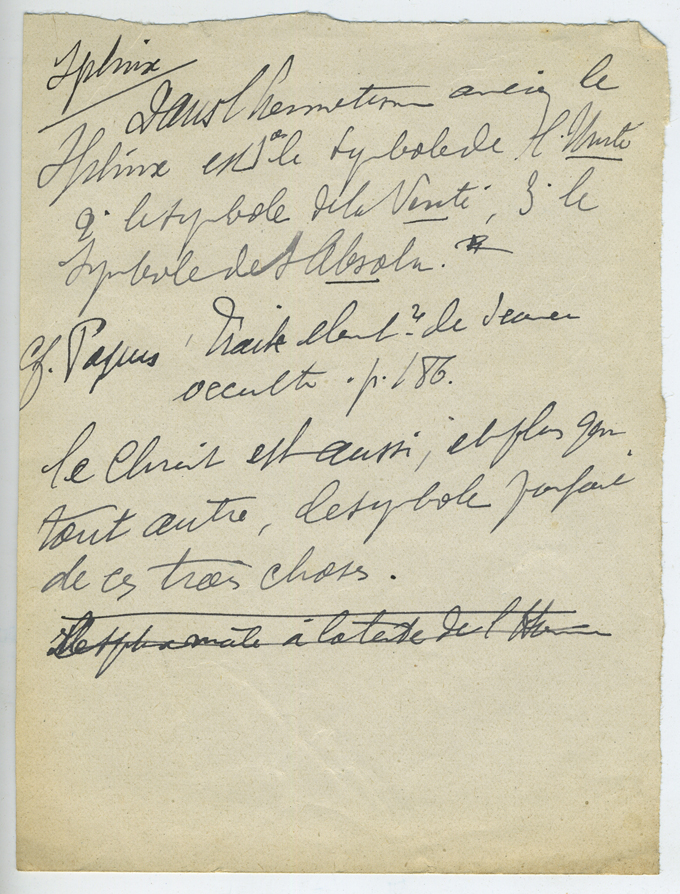 Sphinx
Dans l'hermetisme ancien le
Sphinx est 1er le symbole de l'Unité
2º le symbole de la Vérité, 3º le
Symbole de l'Absolu.
Cf. Papus Traité elemt re de Science
occulte. p. 186.
le Christ est aussi, et plus que
tout autre, le symbole parfait
de ces trois choses.
Le sphinx mâle à la tête de l'Homme